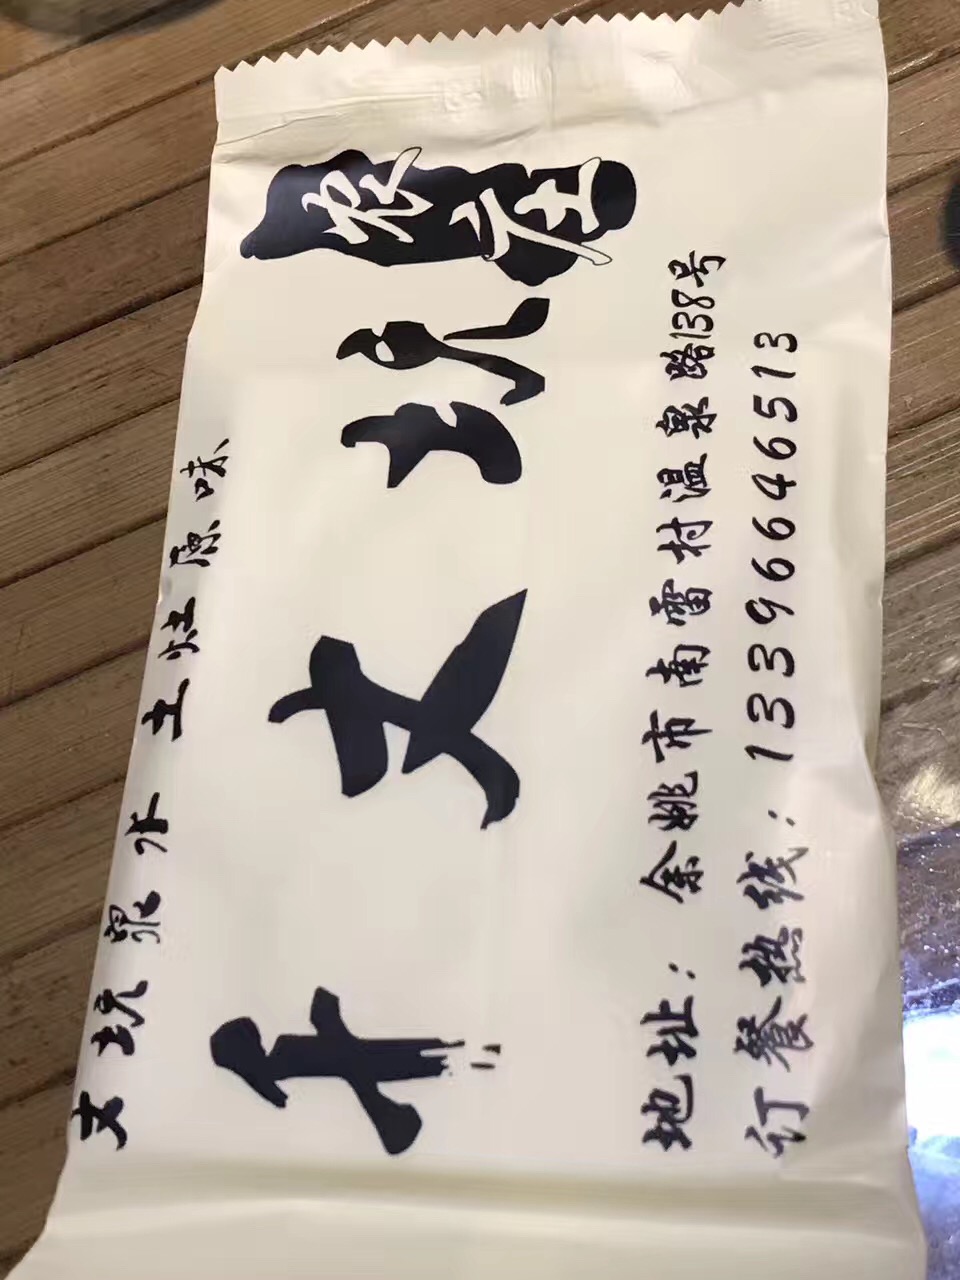 丈坑泉水 土灶原味
千丈坑
农庄
地址：余姚市南雷村温泉路138号
订餐热线：13396646513